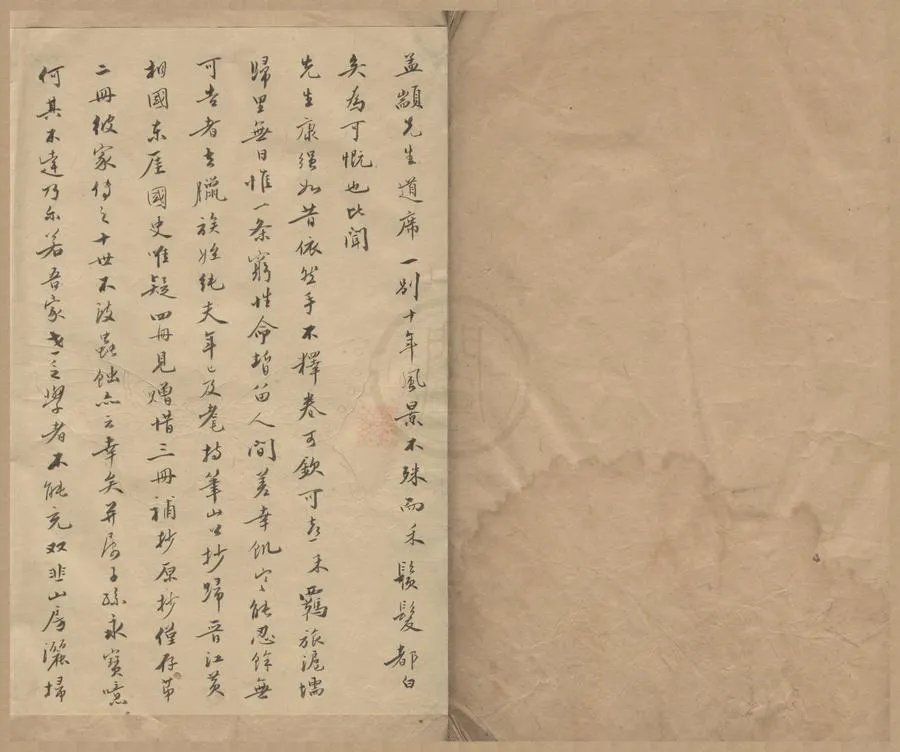 孟顓先生道席一別十年風景不殊而禾鬚髮都白
矣為可慨也比聞
先生康強如昔依然手不釋卷可欽可喜禾羈旅滬壖
歸里無日惟一条窮性命暫留人間差幸飢寒能忍餘無
可告者去臘族姪純夫年已及耄持筆山公抄歸晉江黃
相國東厓國史唯疑四冊見贈惜三冊補抄原抄僅存第
二冊彼家傳之十世不被蟲蝕亦云幸矣并屬子孫永寶噫
何其不達乃尔若吾家之學者不能充双韭山房灑掃